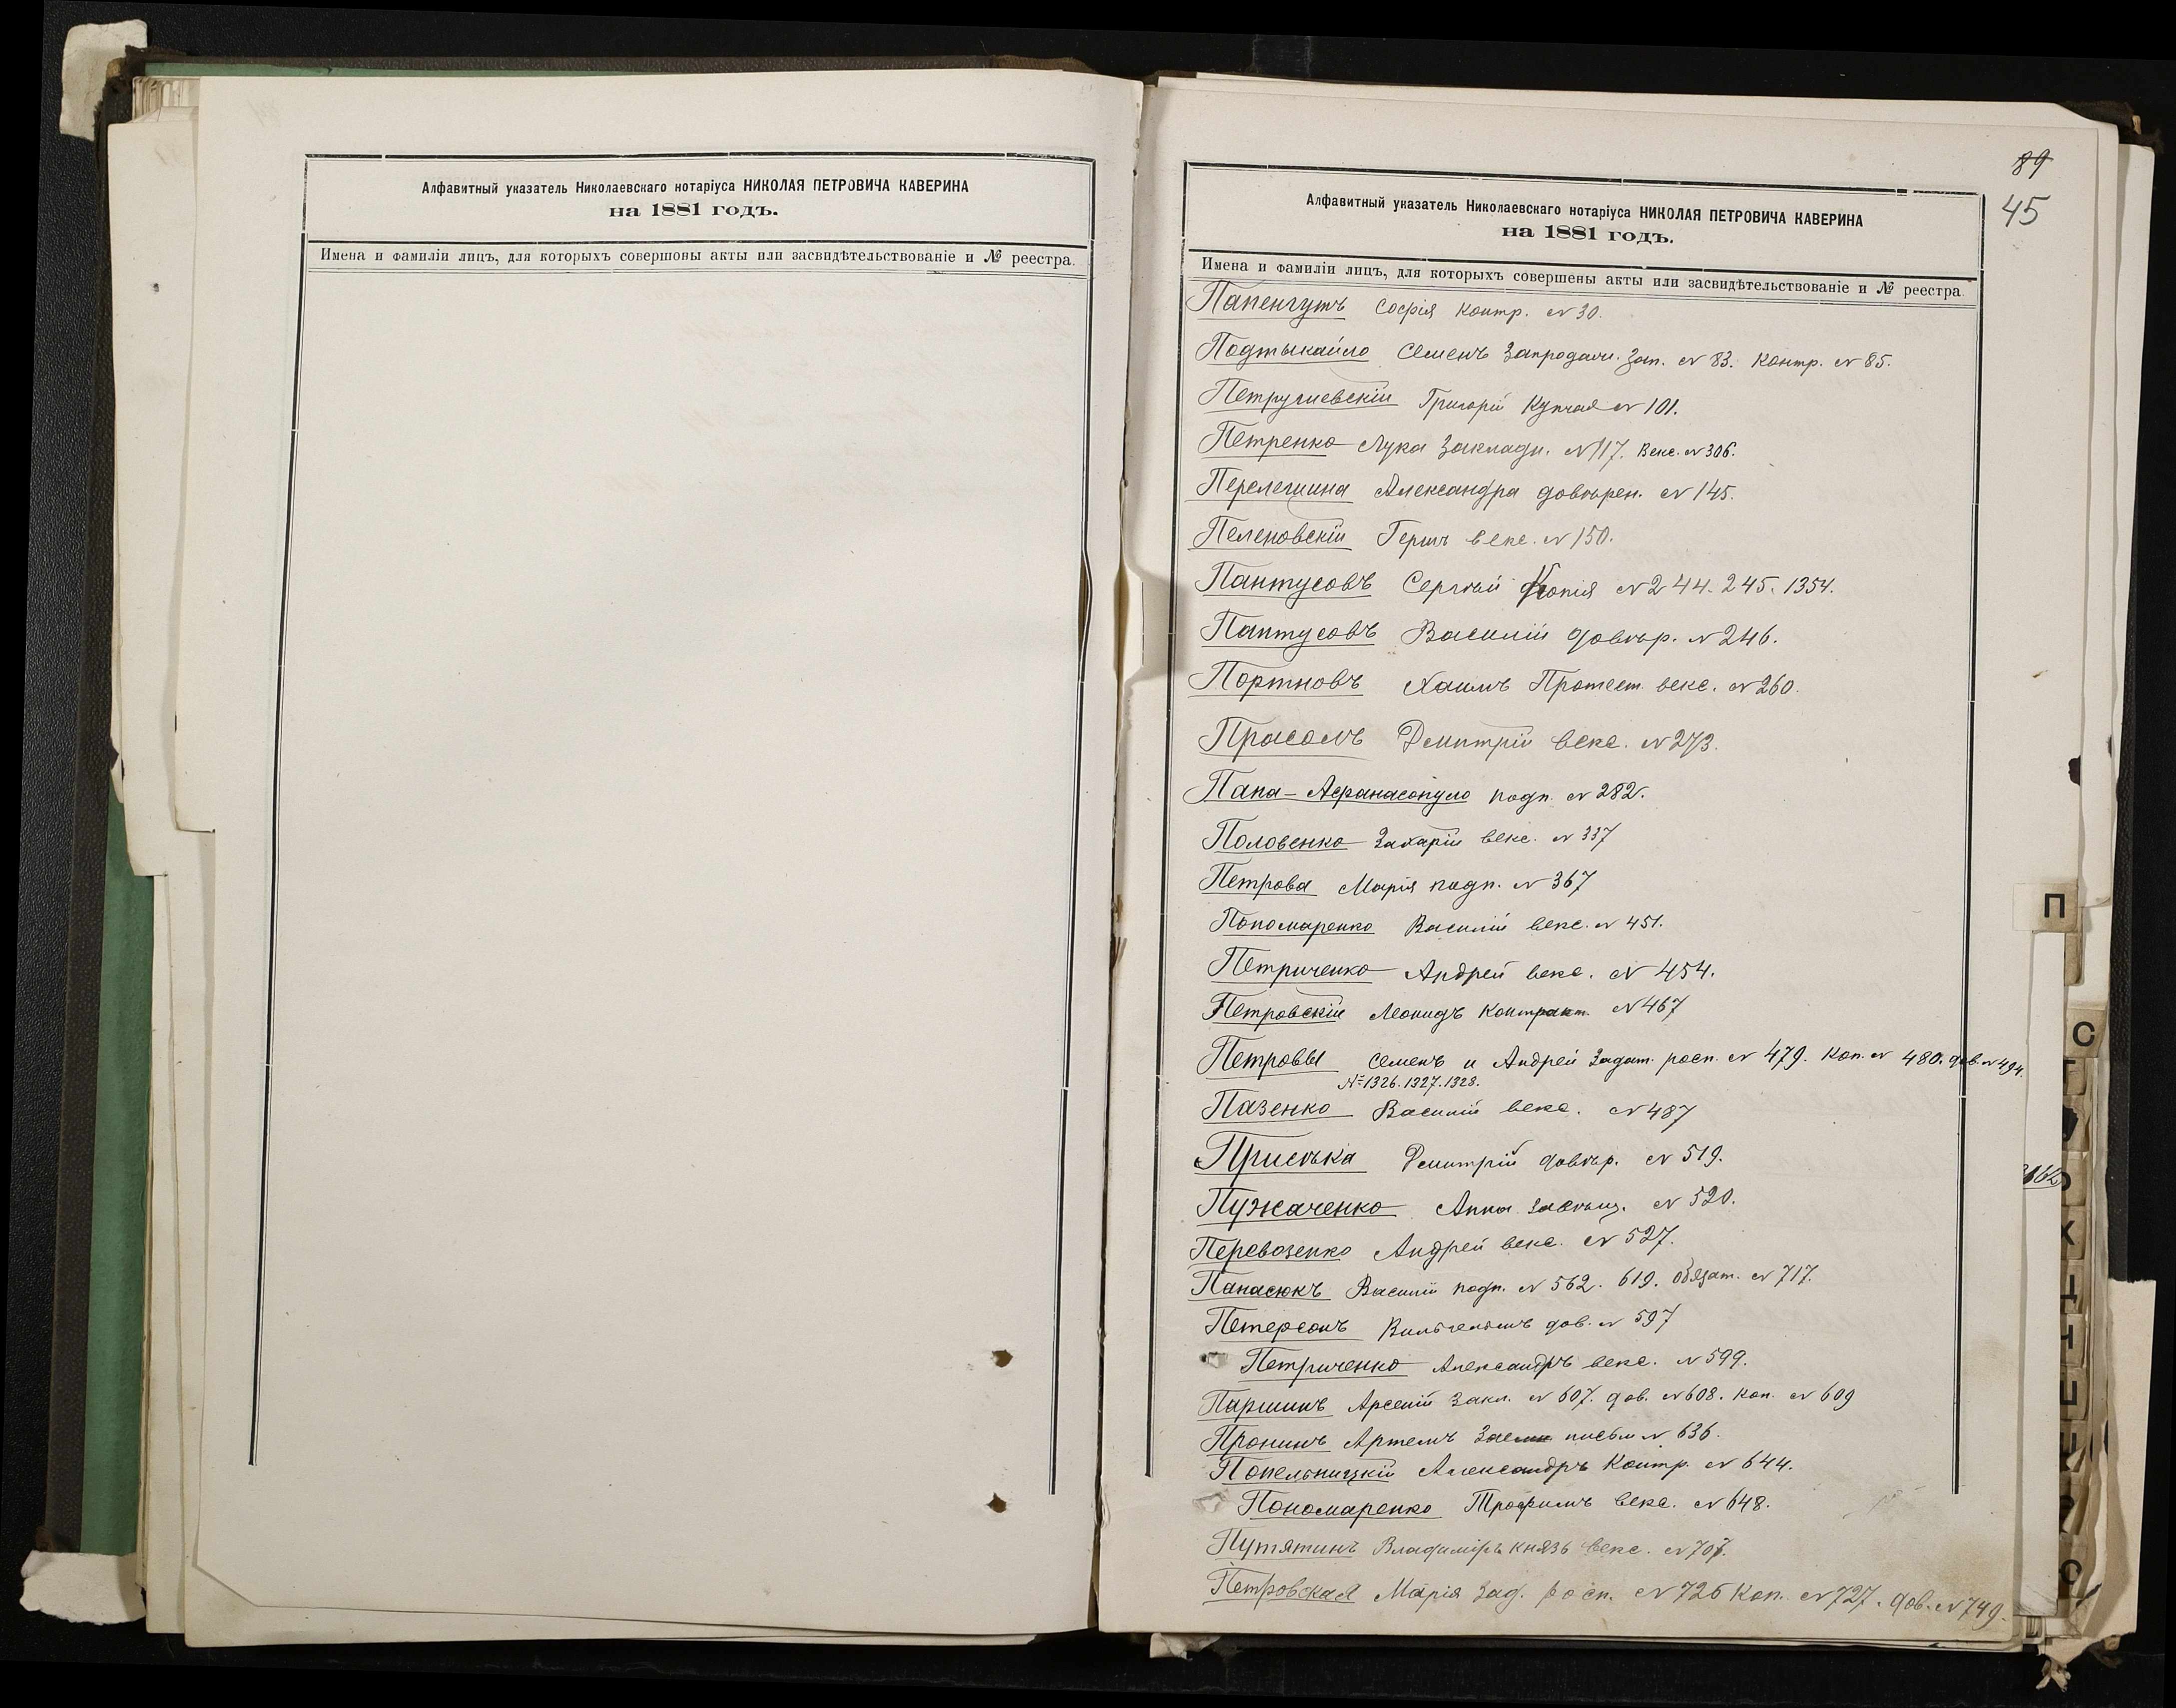 Алфавитный указатель Николаевскаго нотаріуса НИКОЛАЯ ПЕТРОВИЧА КАВЕРИНА
на 1881 годъ.
Имена и фамиліи лицъ, для которыхъ совершоны акты или засвидѣтельствованіе и № реестра.
89
45
Алфавитный указатель Николаевскаго нотаріуса НИКОЛАЯ ПЕТРОВИЧА КАВЕРИНА
на 1881 годъ.
Имена и фамиліи лицъ, для которыхъ совершены акты или засвидѣтельствованіе и № реестра.
Папенгутъ Софія контр. № 30.
Подтыкайло Семенъ Запродажн. зап. № 83. Контр. № 85.
Григорій Купчая № 101.
Петренко Лука Закладн. № 117. Векс. № 306.
Перелешина Александра довѣрен. № 145.
Пеленовскій Гершъ векс. № 150.
Пантусовъ Сергѣй Копія № 244. 245. 1354.
Пантусовъ Василій довѣр. № 246.
Портновъ Хаимъ Протест. векс. № 260.
Прасолъ Дмитрій векс. № 273.
Папа-Афанасопуло подп. № 282.
Половенко Захарій векс. № 337
Петрова Марія подп. № 367
Пономаренко Василій векс. № 451.
Петриченко Андрей векс. № 454.
Петровскій Леонидъ Контракт. № 467
Петровы Семенъ и Андрей Задат. росп. № 479. Коп. № 480. дов. № 494.
№ 1326. 1327. 1328.
Пазенко Василій векс. № 487
Присѣка Дмитрій довѣр. № 519.
Пужаченко Анна завѣщ. № 520.
Перевозенко Андрей векс. № 527.
Панасюкъ Василій подп. № 562. 619. Обязат. № 717.
Петерсонъ Вильгельмъ дов. № 597
Петриченко Александръ векс. № 599.
Паршинъ Арсеній Закл. № 607. дов. № 608. Коп. № 609
Пронинъ Артемъ Заемн. письм № 636.
Попельницкій Александръ Контр. № 644.
Пономаренко Трофимъ векс. № 648.
Путятинъ Владиміръ князь векс. № 707.
Петровская Марія Зад. росп. № 726 Коп. № 727. дов. № 749.
П
С
Х